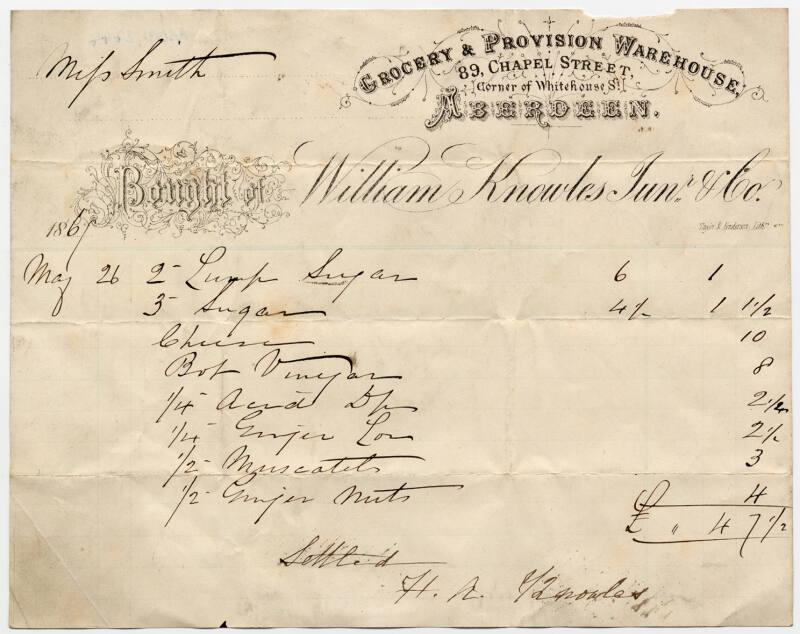 Miss Smith
GROCERY & PROVISION WAREHOUSE,
89, CHAPEL STREET,
[Corner of Whitehouse St]
ABERDEEN.
Bought of William Knowles Junr. & Co.
1867
Taylor & Henderson, Lithrs
May 26 2 Lump Sugar 6 1
3 Sugar 4½ 1 1½
Cheese 10
Bot Vinegar 8
¼ Acid Dps 2½
¼ Ginger Loz 2½
½ Muscatels 3
½ Ginger Nuts 4
£ " 4 7½
Settled
Knowles